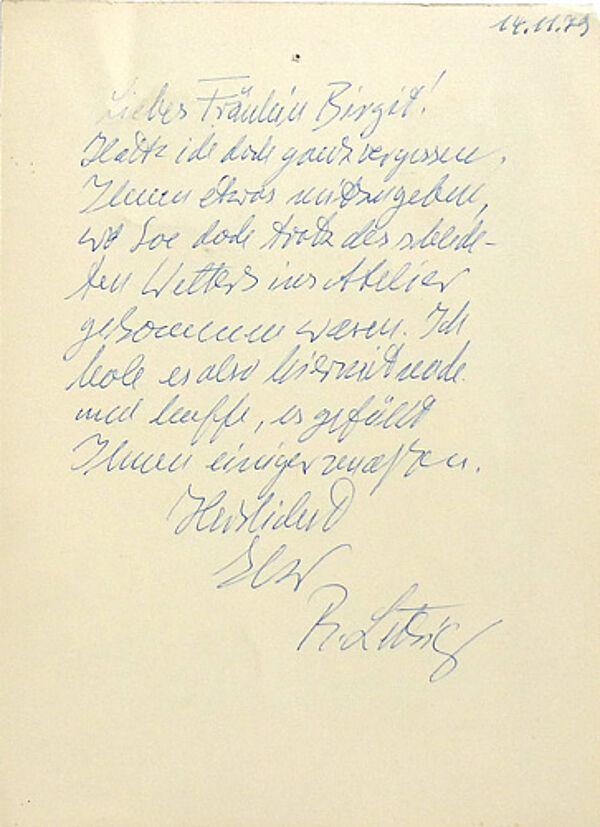 14.11.79
Liebes Fräulein Birgit!
Hatte ich doch ganz vergessen,
Ihnen etwas mitzugeben,
wo Sie doch trotz des schlech-
ten Wetters ins Atelier
gekommen waren. Ich
hole es also hiermit nach
und hoffe, es gefällt
Ihnen einigermaßen.
Herzlichst
Ihr